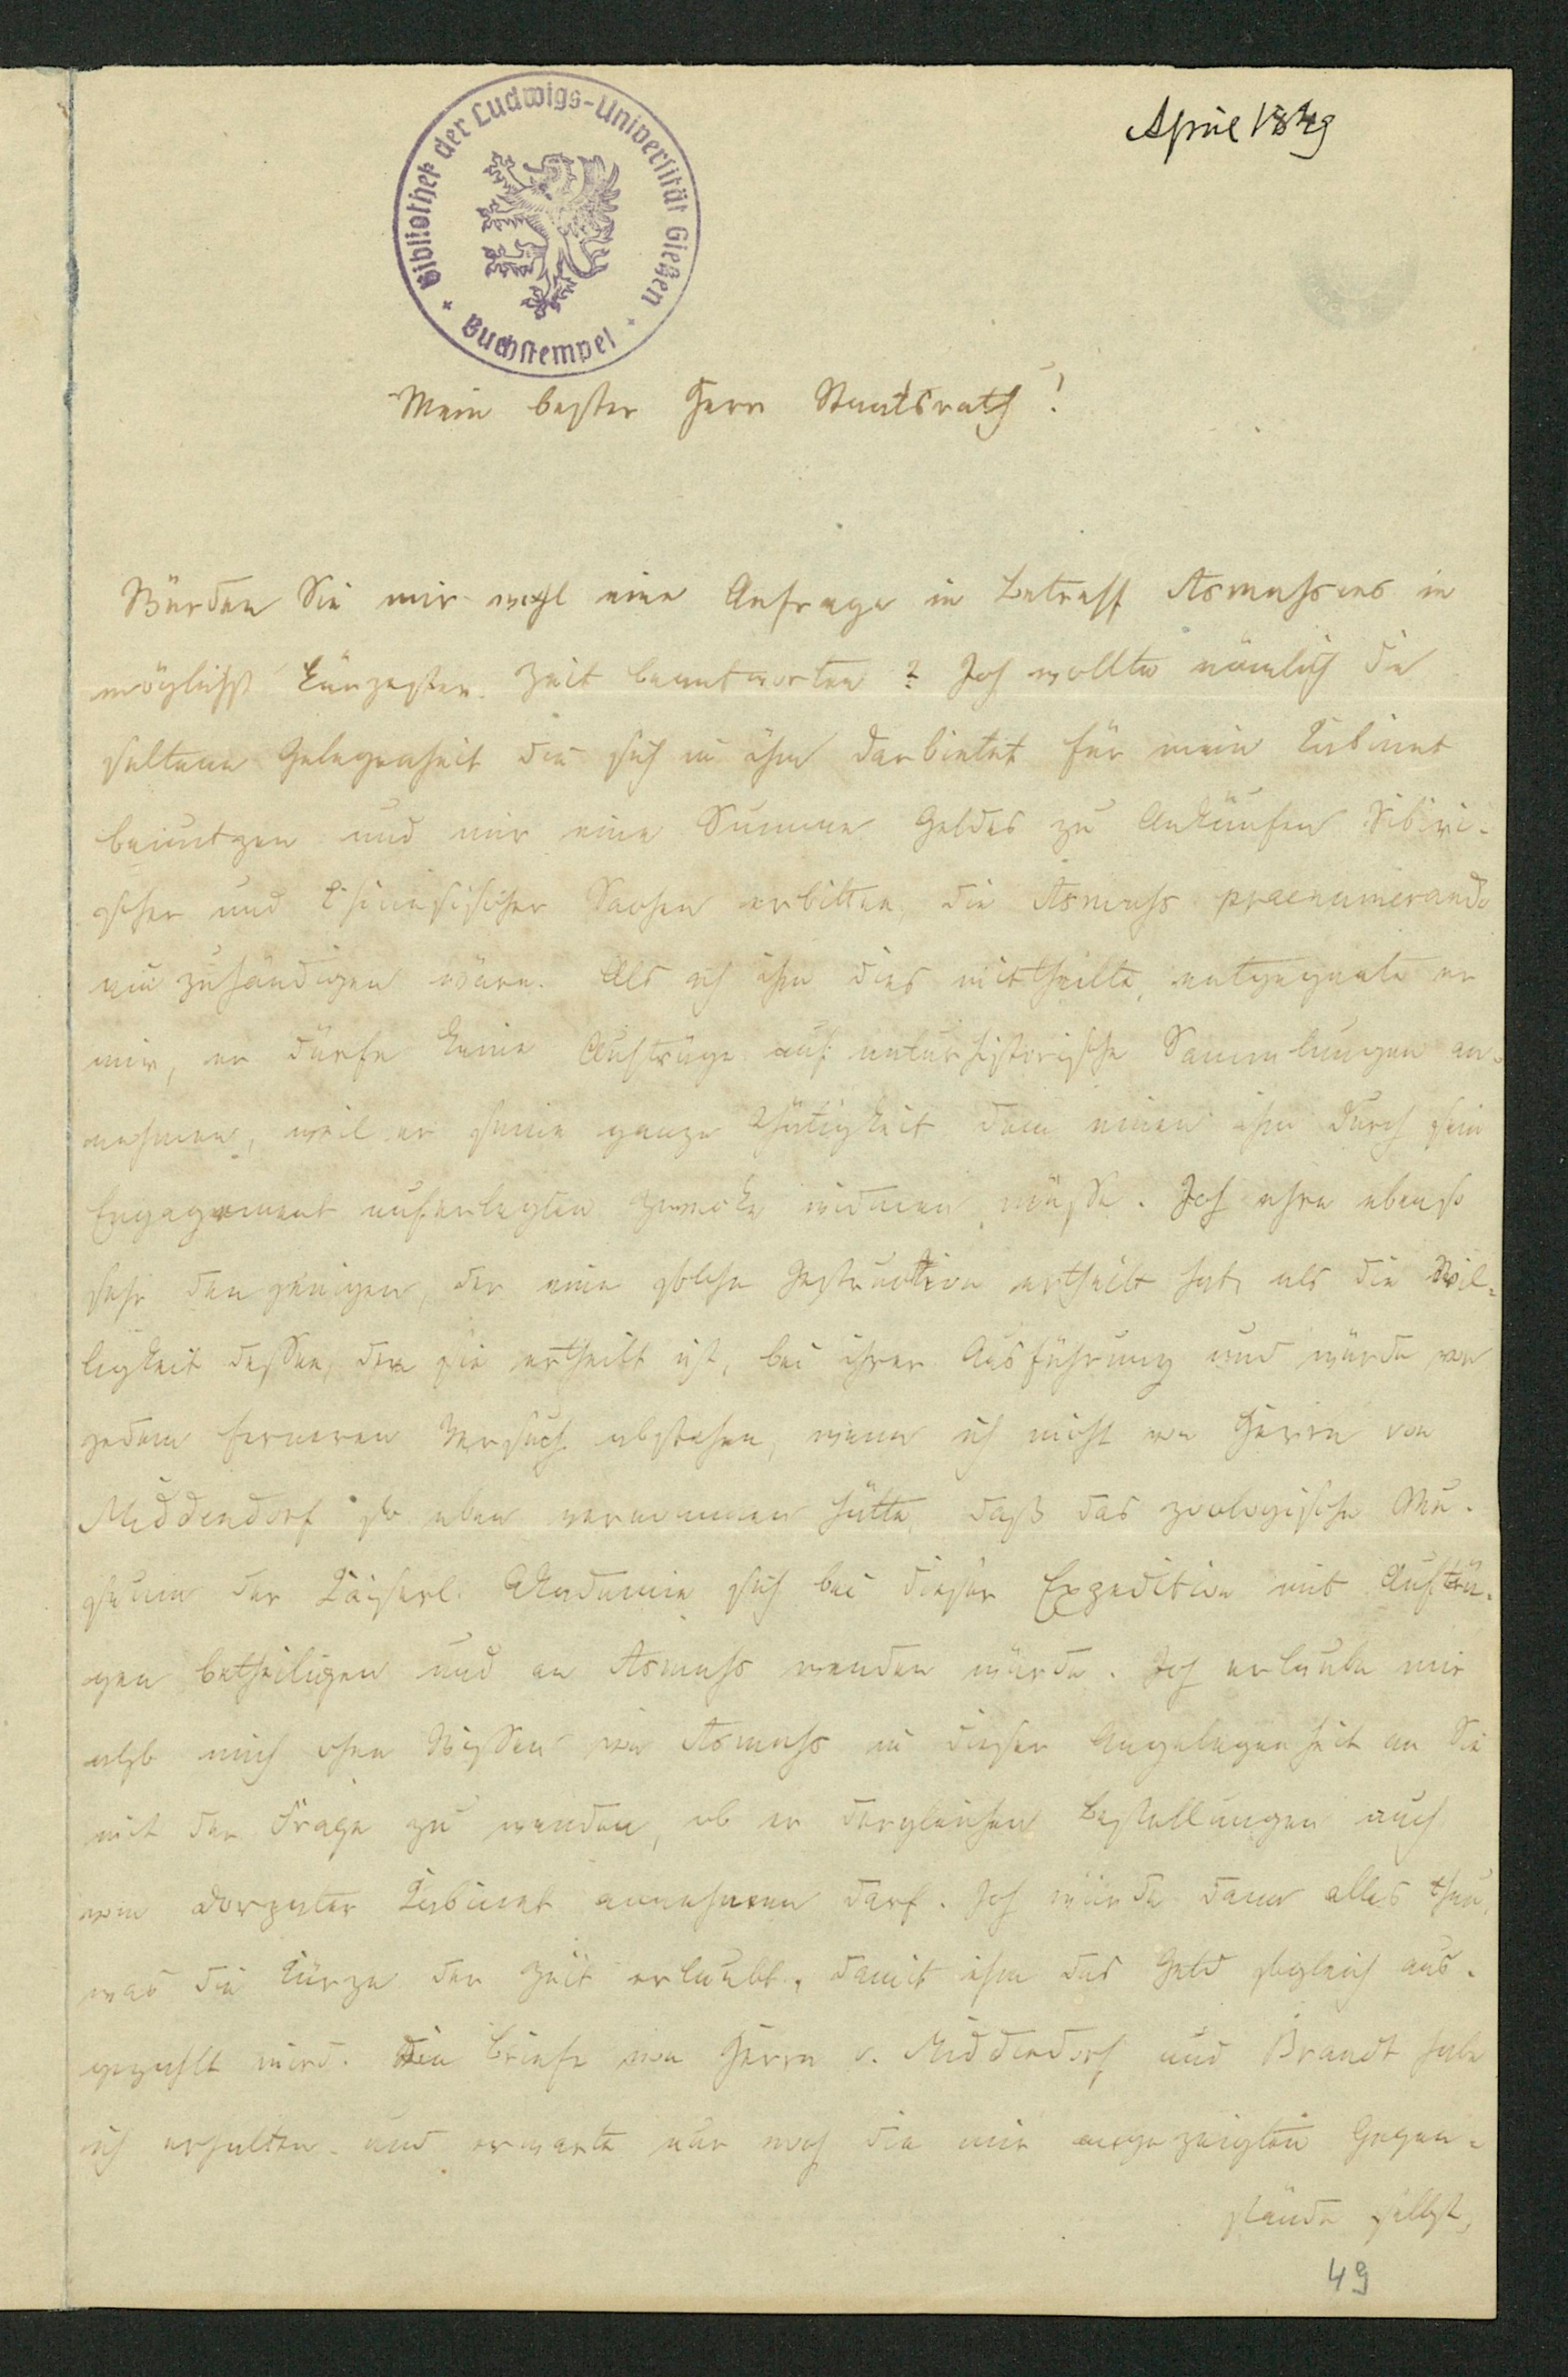 April 1849
Bibliothek der Ludwigs-Universität Gießen
Buchstempel
Mein bester Herr Staatsrath!
Würden Sie mir wohl eine Anfrage in Betreff Asmussens in
möglichst kürzester Zeit beantworten? Ich wollte nämlich die
seltene Gelegenheit die sich in ihm darbietet für mein Cabinet
benutzen und mir eine Summe Geldes zu Ankäufen Sibiri-
scher und Chinesischer Sachen erbitten, die Asmuss praenumerando
einzuhändigen wäre. Als ich ihm dies mittheilte, entgegnete er
mir, er dürfe keine Aufträge auf naturhistorische Sammlungen an-
nehmen, weil er seine ganze Thätigkeit dem einen ihm durch sein
Engagement auferlegten Zwecke widmen müsse. Ich ehre ebenso
sehr denjenigen, der eine solche Instruction ertheilt hat, als die Wil-
ligkeit dessen, dem sie ertheilt ist, bei ihrer Ausführung und würde von
jedem ferneren Versuch abstehen, wenn ich nicht von Herrn von
Middendorf so eben vernommen hätte, daß das zoologische Mu-
seum der Kaiserl. Akademie sich bei dieser Expedition mit Aufträ-
gen betheiligen und an Asmuss wenden würde. Ich erlaube mir
also mich ohne Wissen von Asmuss in dieser Angelegenheit an Sie
mit der Frage zu wenden, ob er dergleichen Bestellungen auch
vom Dorpater Cabinet annehmen darf. Ich würde dann alles thun,
was die Kürze der Zeit erlaubt, damit ihm das Geld sogleich aus-
gezahlt wird. Die Briefe von Herrn v. Middendorf und Brandt habe
ich erhalten und erwarte nur noch die mir angezeigten Gegen-
stände selbst,
49